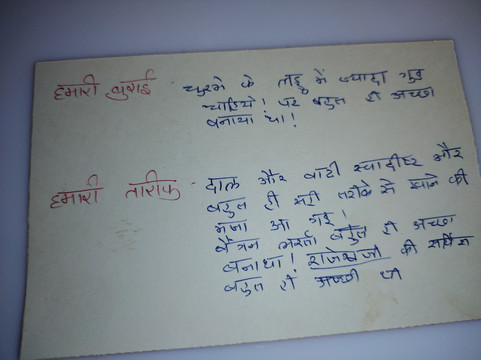 हमारी बुराई - चुरमे के लड्डू में ज्यादा गुड़
चाहिये! पर बहुत ही अच्छा
बनाया था!
हमारी तारीफ - दाल और बाटी स्वादीष्ट और
बहुत ही सही तरीके से खाने की
मजा आ गई!
बैंगन भर्ता बहुत ही अच्छा
बनाथा! राजेश्वजी की सर्विस
बहुत ही अच्छी थी